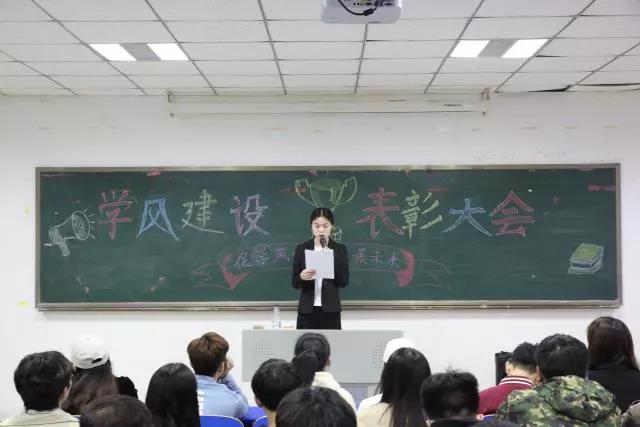 学风建设 表彰大会
促学风 展未来